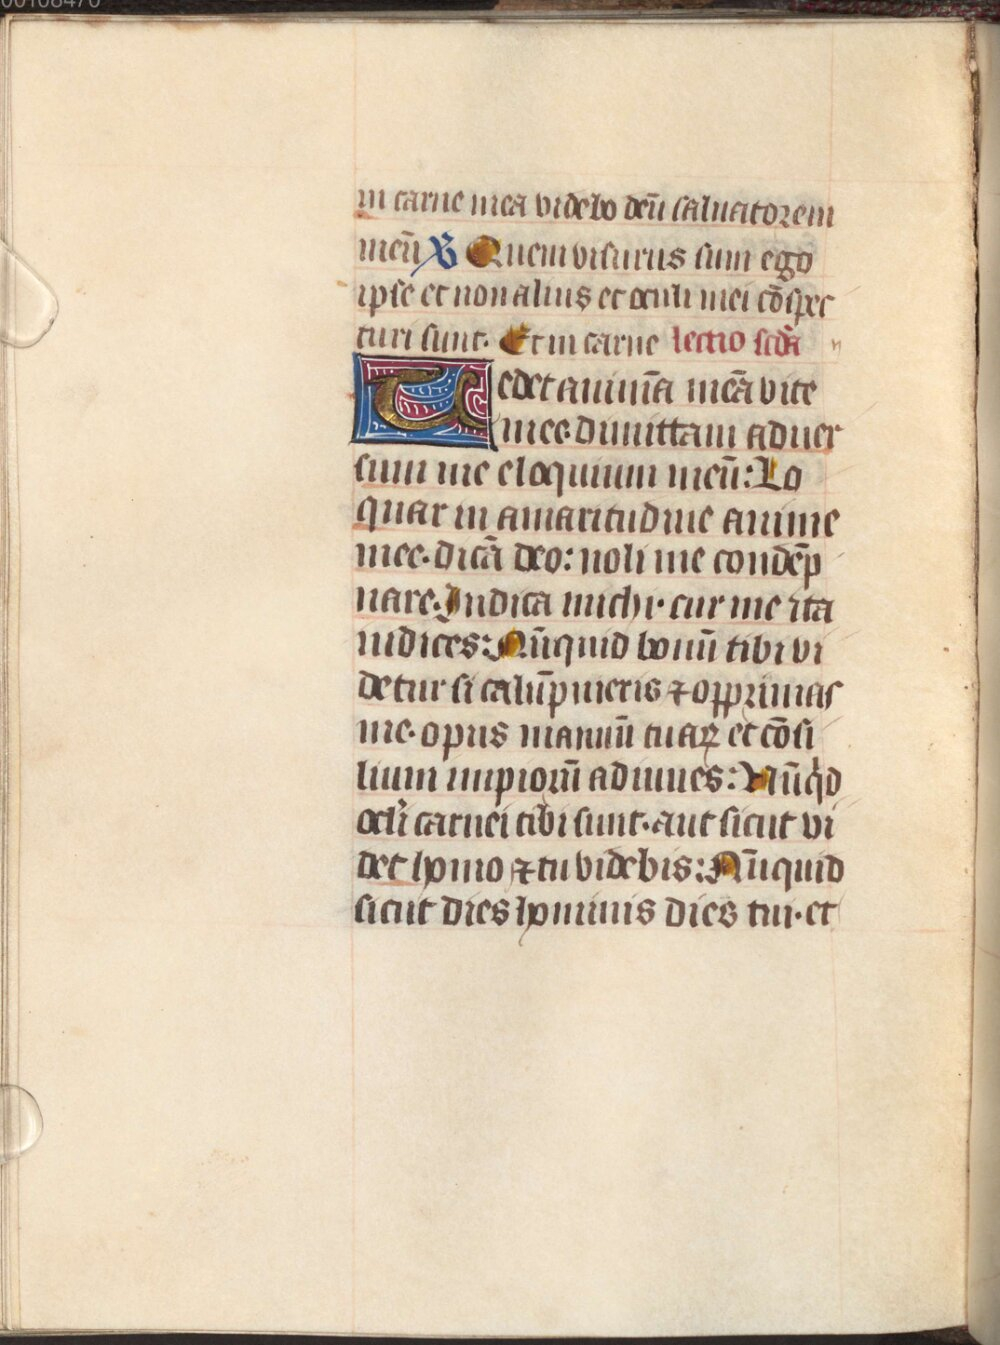 in carne mea videbo deū saluatorem
meū ℣ Quem visurus sum ego
ipse et non alius et oculi mei cōspec
turi sunt. Et in carne lectio scdā
Tedet animā meā vite
mee. dimittam aduer
sum me eloquium meū: Lo
quar in amaritudine anime
mee. dicā deo: noli me condēp
nare. Indica michi. cur me ita
iudices: Nūquid bonū tibi vi
detur si calūpnieris ⁊ opprimas
me. opus manuū tuaꝝ et cōsi
lium impiorū adiuues: Nūqd
oclī carnei tibi sunt. aut sicut vi
det homo ⁊ tu videbis: Nūquid
sicut dies hominis dies tui. et